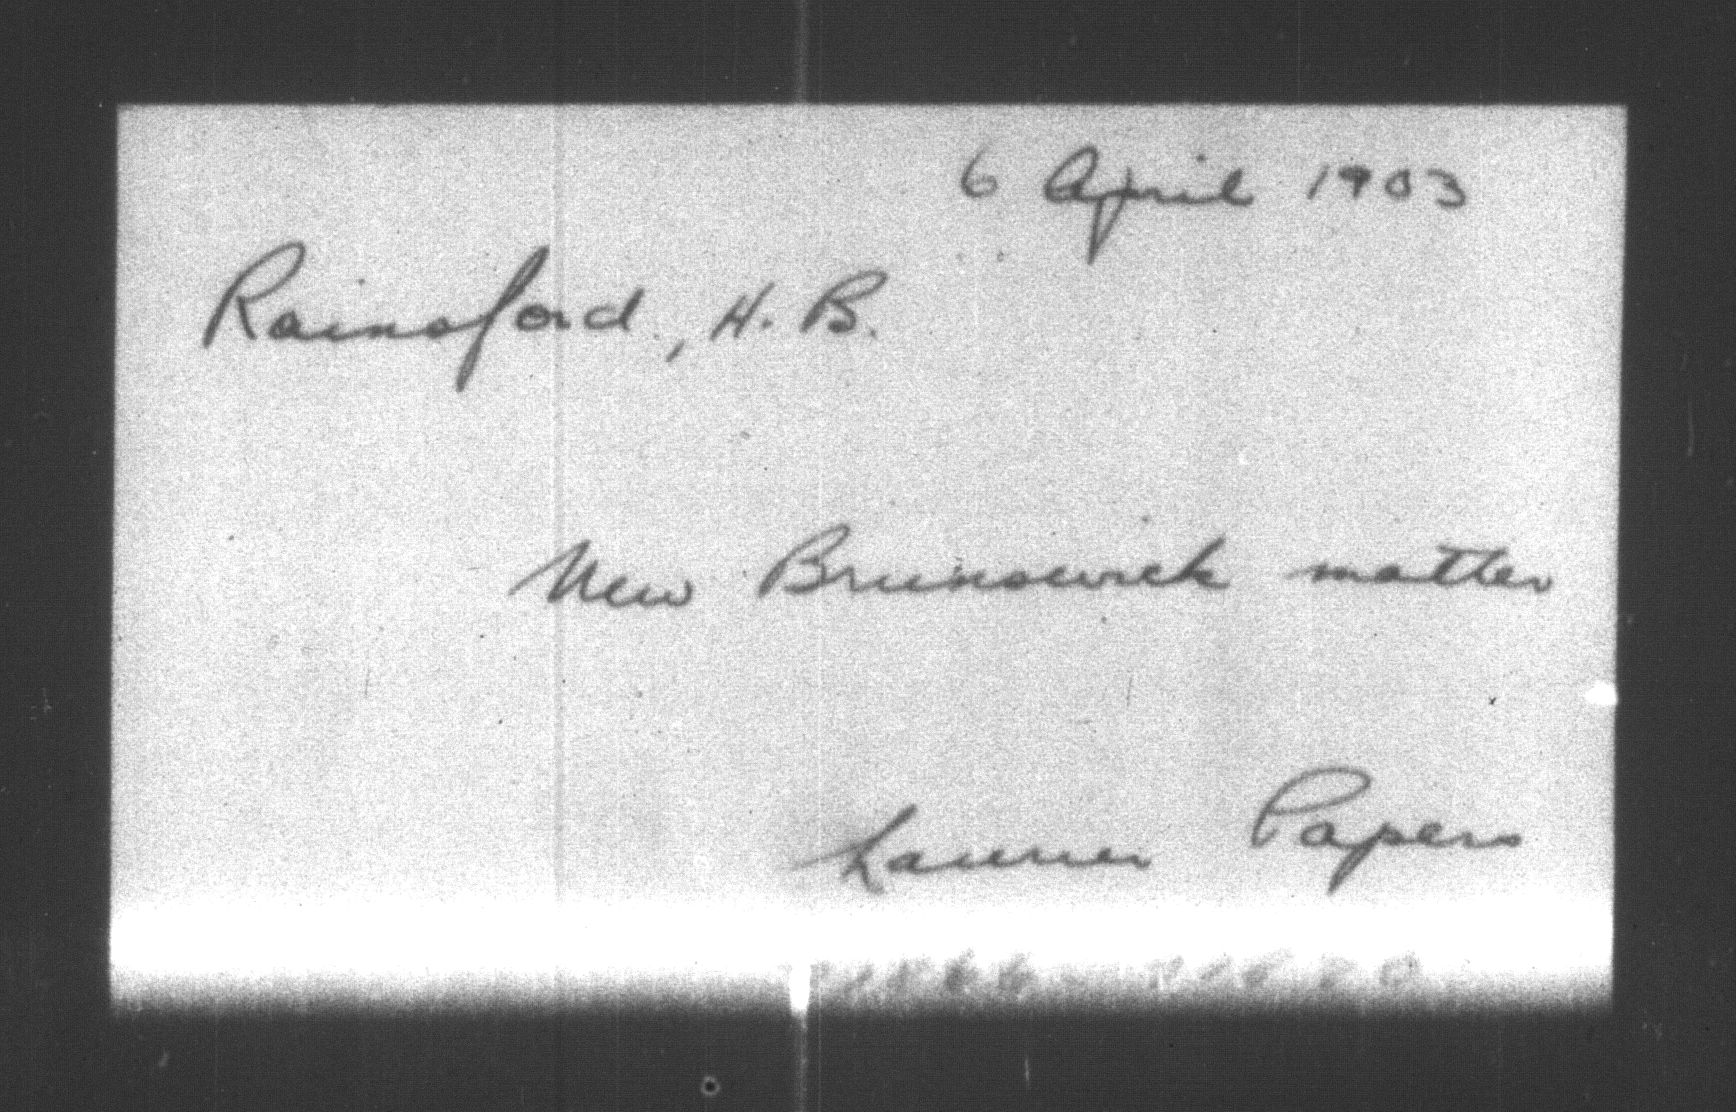 6 April 1903
Rainsford, H. B.
New Brunswick matter
Laurier Papers